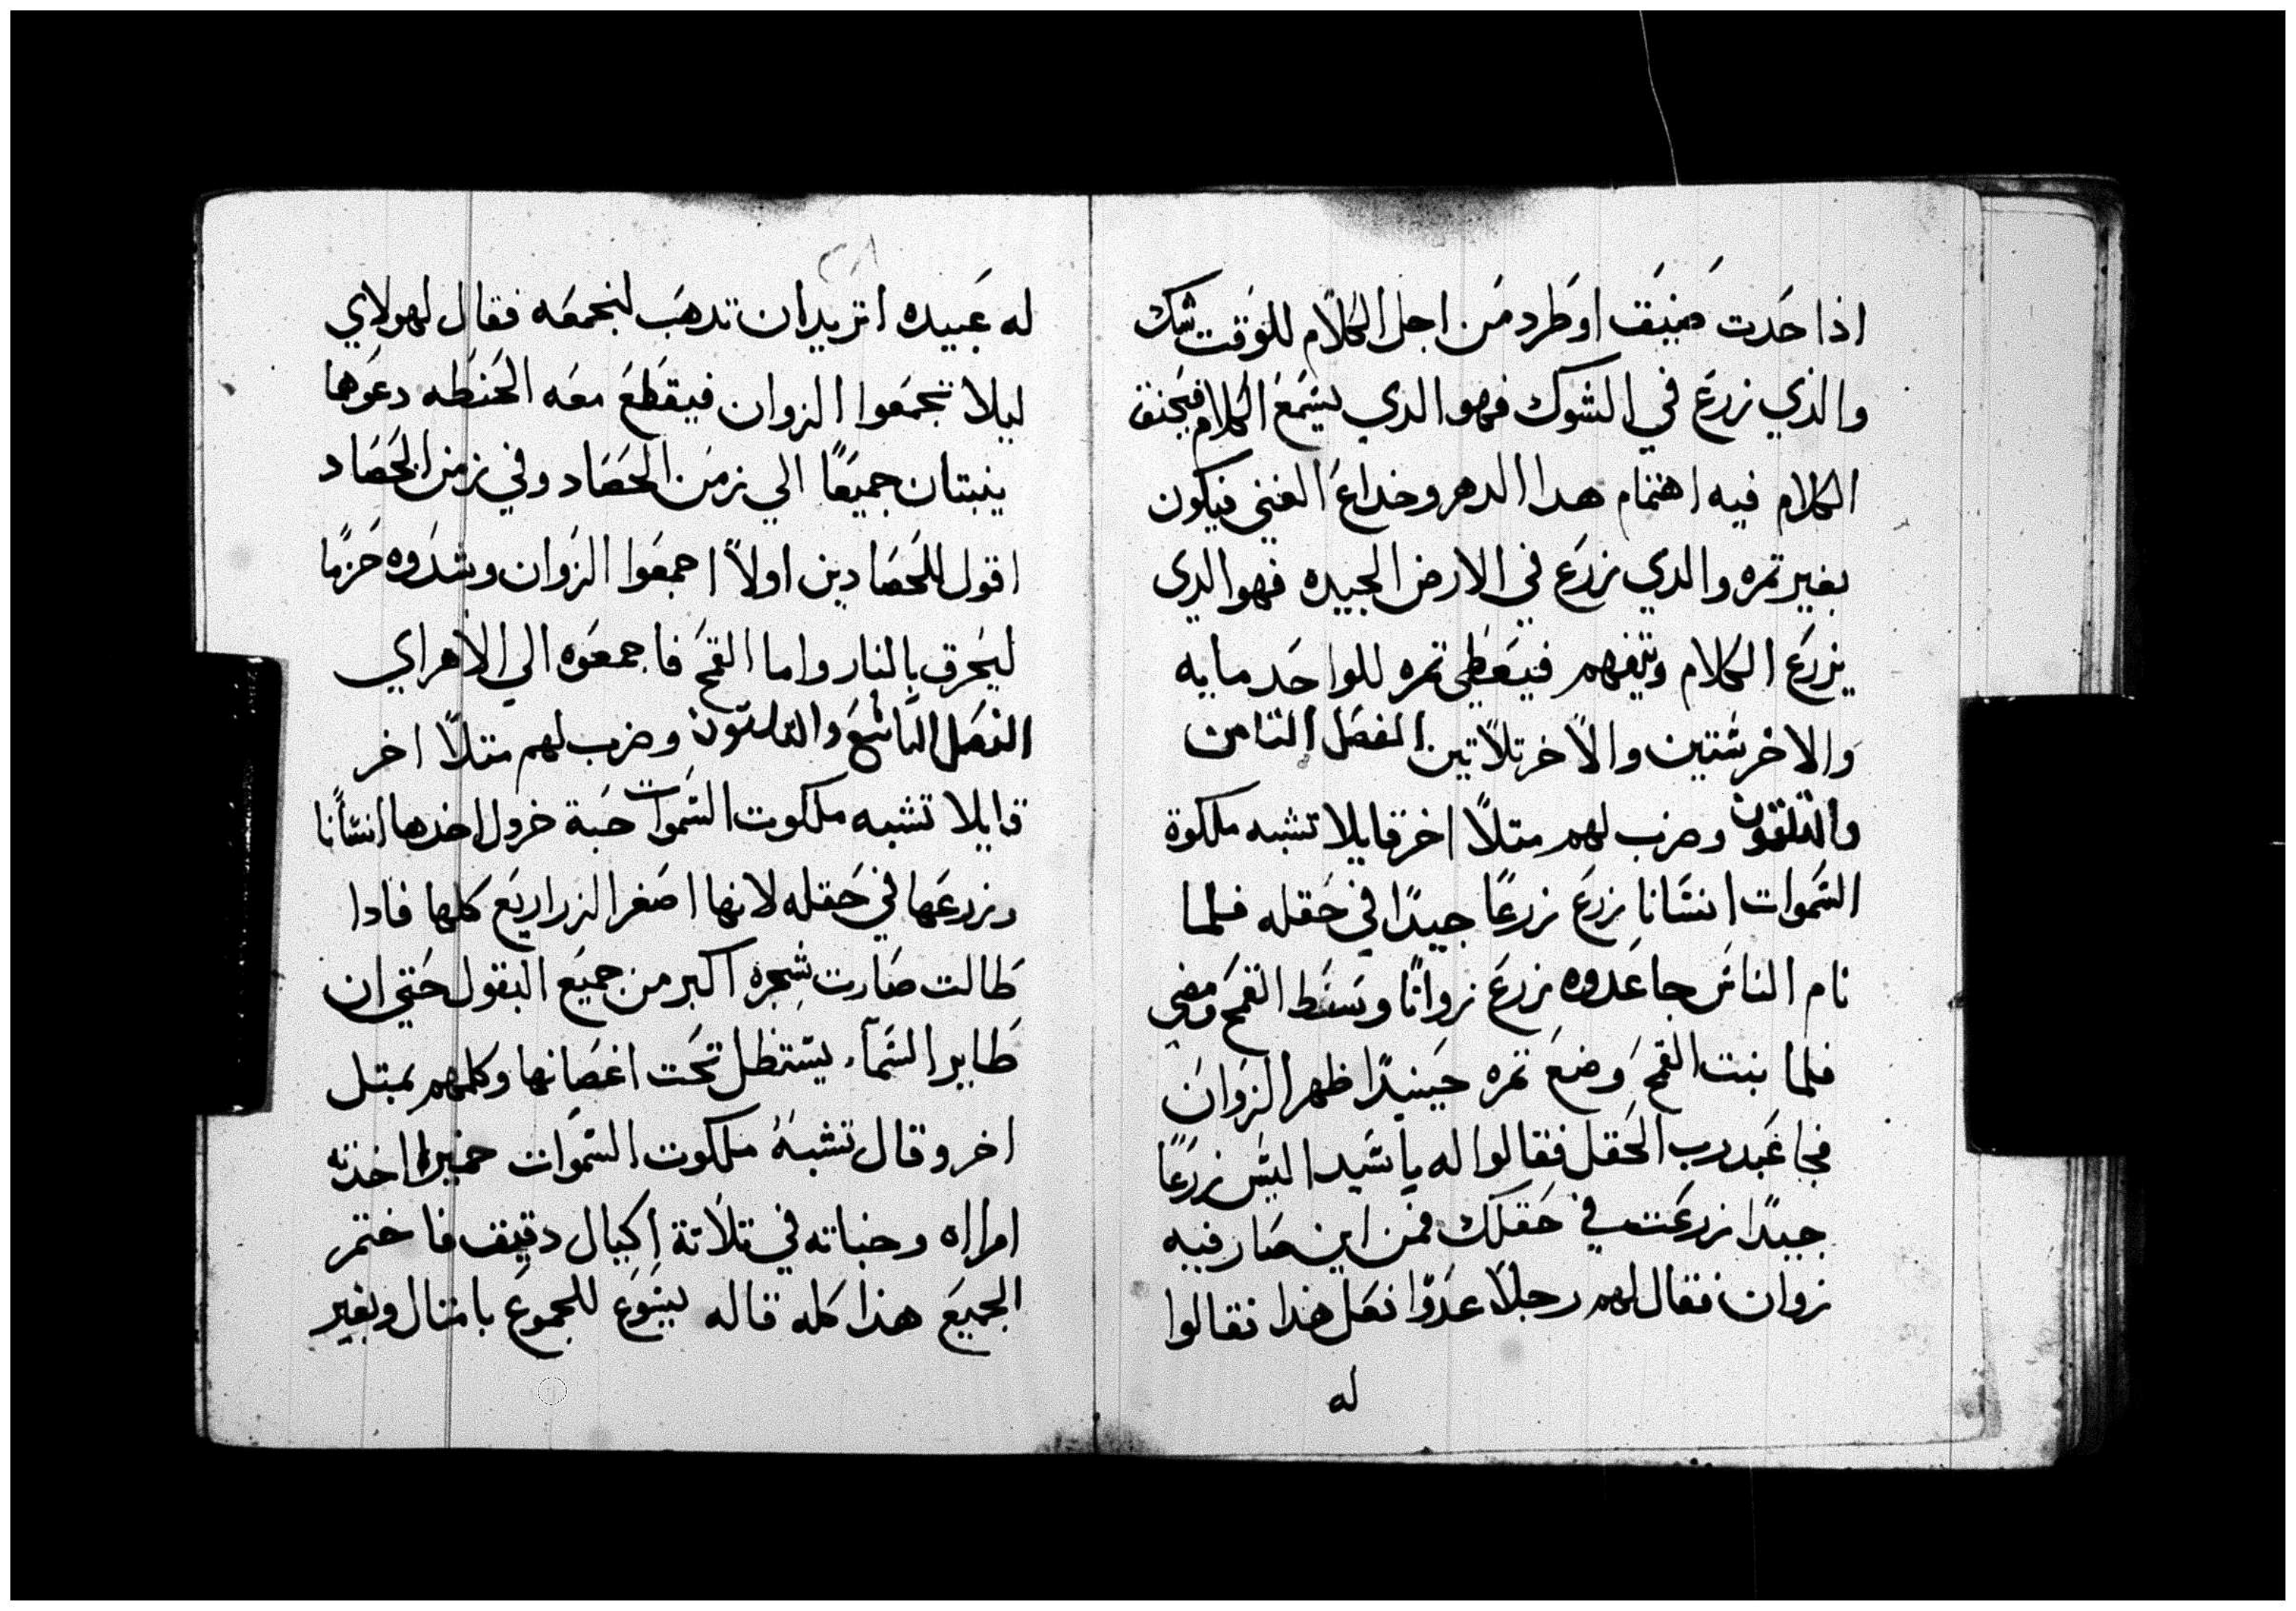 اذا حَدت ضيَق او طَرد مَن اجل الكلاَم للوَقت شك
والذي زرعَ في الشوك فهو الدي يسَمَعَ الكلام فيَخنق
الكلام فيه اهتمام هدا الدهر وخداعَ الغني فيكون
بغير تمره والدي زرَع في الارض الجيده فهو الدي
يزرَع الكلام ويتفهم فيعَطَي تمره للواحَد مايه
وَالاخر ستين والاَخر تلاَتين الفصَل التامن
والتلتون وضرب لهم متلاً اخر قايلا تشبه ملكوة
السَموات انسَانا زرعَ زرعًا جيدًا في حَقله فلما
نام الناسَ جا عَدوه زرعَ زوانًا وسَط القمحَ ومضي
فلما نبت القمحَ وَضعَ تمره حَينيدًا ظهر الزَوانَ
فجا عَبد رب الحَقل فقالوا له يا سَيد اليسَ زرَعًا
جيدًا زرعَت في حَقلك فمن اين صَار فيه
زوان فقال لهم رجلاً عَدوًا فعَل هَدا فقالوا
له
٢٨
له عَبيده اتريد ان تدهَب لنجمعَه فقال لهولاي
ليلا تجمعَوا الزوان فيقطَعَ معَه الحَنطَه دعَوهما
ينبتان جميعًا الي زمَن الحَصَاد وفي زمن الحَصَاد
اقول للحَصَادين اولاً اجمعَوا الزَوان وشدَوه حَزمًا
ليَحرق بالنار واما القمحَ فاجمعَوه الي الاهراي
الفصَل التاسَعَ والتلتون وضرب لهم متلاً اخر
قايلا تشبه ملكوت السَموات حَبة خردل اخدها انسَانًا
وزرعَها في حَقله لانها اصَغر الزراريَع كلها فادا
طَالت صَارت شجره اكبر من جميَع البقول حَتي ان
طَاير السَمآء يستظل تحَت اغصَانها وكلمهم بمتل
اخر وقال تشبهُ ملكوت السَموَات خميرا اخذته
امرااه وخباته في تلاَتة اكيال دقيق فاختمر
الجميعَ هذا كله قاله يسَوَع للجموَع بامتال وبغير